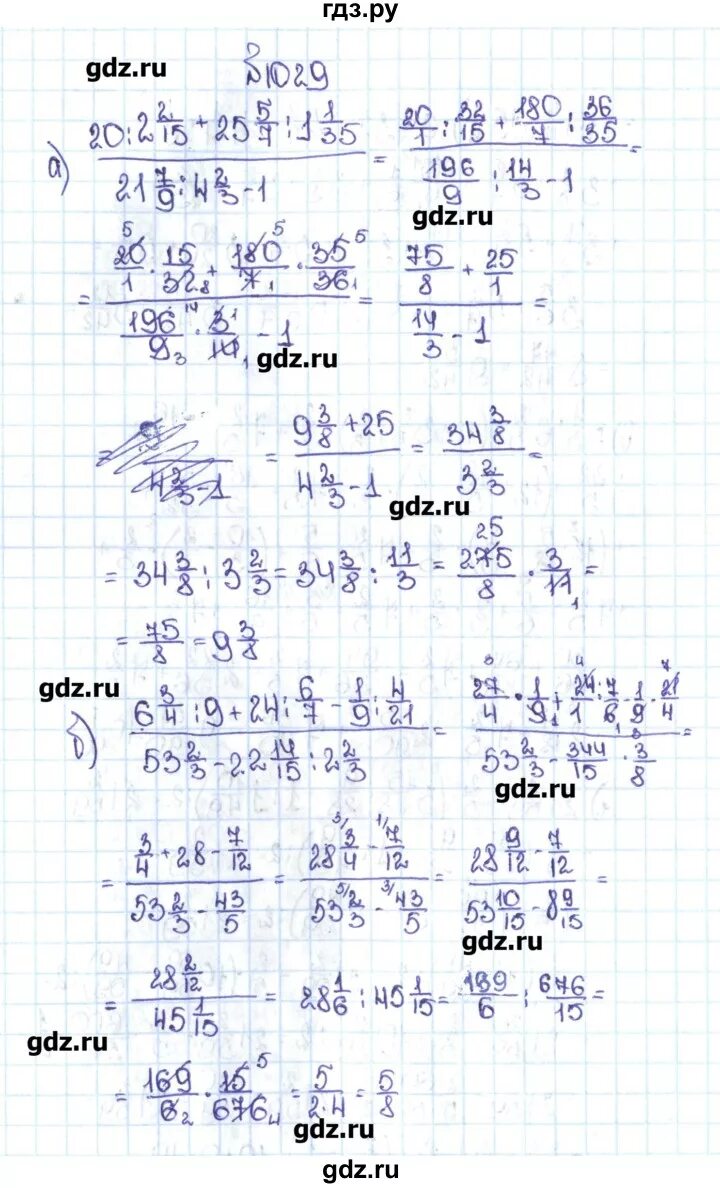 гдз.ру
gdz.ru
№1029
а) (20 : 2 2/15 + 25 5/7 : 1 1/35) / (21 7/9 : 4 2/3 - 1) = (20/1 : 32/15 + 180/7 : 36/35) / (196/9 : 14/3 - 1) =
gdz.ru
= (20/1 · 15/32 + 180/7 · 35/36) / (196/9 · 3/14 - 1) = (75/8 + 25/1) / (14/3 - 1) =
gdz.ru
= (9 3/8 + 25) / (4 2/3 - 1) = (34 3/8) / (3 2/3) =
gdz.ru
= 34 3/8 : 3 2/3 = 34 3/8 : 11/3 = 275/8 · 3/11 =
= 75/8 = 9 3/8
gdz.ru
б) (6 3/4 : 9 + 24 : 6/7 - 1/9 : 4/21) / (53 2/3 - 22 14/15 : 2 2/3) = (27/4 · 1/9 + 24/1 : 7/6 - 1/9 · 21/4) / (53 2/3 - 344/15 · 3/8) =
gdz.ru
= (3/4 + 28 - 7/12) / (53 2/3 - 43/5) = (28 3/4 - 7/12) / (53 2/3 - 43/5) = (28 9/12 - 7/12) / (53 10/15 - 8 9/15) =
gdz.ru
= (28 2/12) / (45 1/15) = 28 1/6 : 45 1/15 = 139/6 : 676/15 =
gdz.ru
= 169/6 · 15/676 = 5/(2·4) = 5/8
gdz.ru
gdz.ru